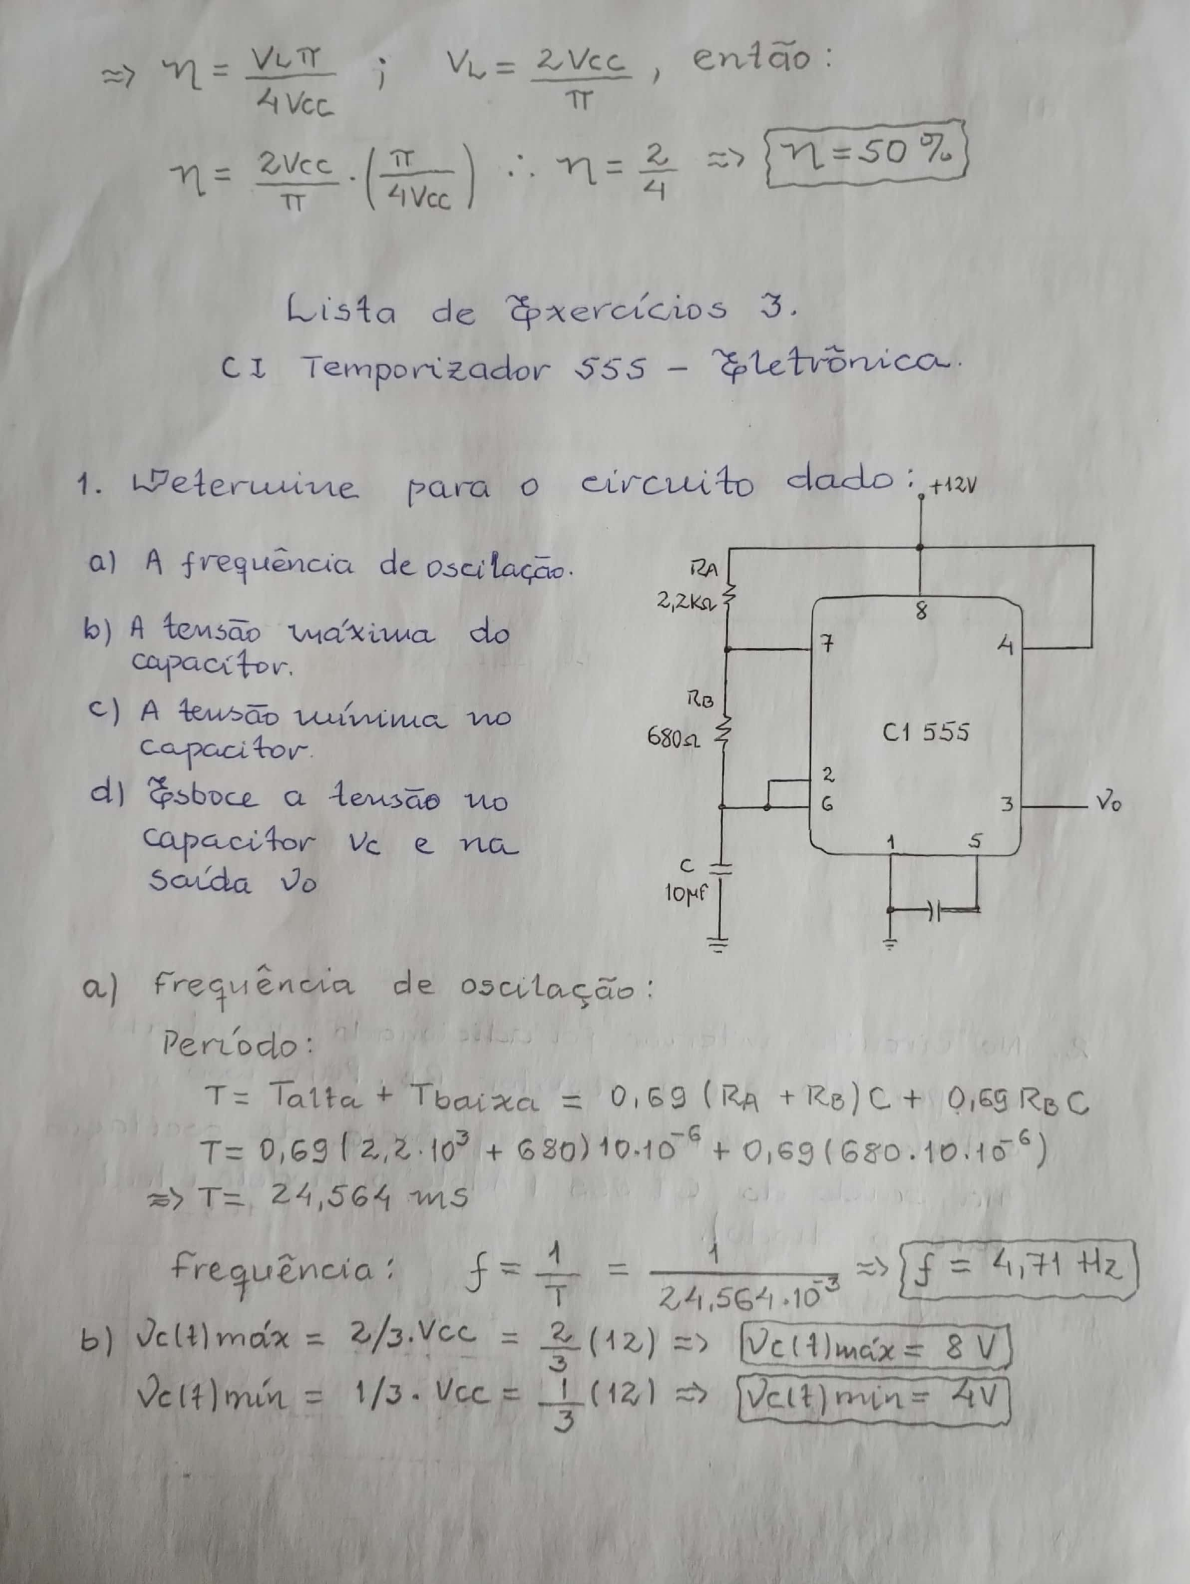 => η = VLπ / 4Vcc ; VL = 2Vcc / π , então:
η = 2Vcc / π · (π / 4Vcc) ∴ η = 2/4 => η = 50 %
Lista de Exercícios 3.
CI Temporizador 555 - Eletrônica.
1. Determine para o circuito dado:
a) A frequência de oscilação.
b) A tensão máxima do
capacitor.
c) A tensão mínima no
capacitor.
d) Esboce a tensão no
capacitor Vc e na
saída Vo
+12V
RA
2,2KΩ
8
7
4
RB
680Ω
CI 555
2
6
3
Vo
1
5
C
10μf
a) frequência de oscilação:
Período:
T = Talta + Tbaixa = 0,69 (RA + RB) C + 0,69 RB C
T = 0,69 (2,2·10³ + 680) 10·10⁻⁶ + 0,69 (680·10·10⁻⁶)
=> T = 24,564 ms
frequência: f = 1/T = 1 / 24,564·10⁻³ => f = 4,71 Hz
b) Vc(t) máx = 2/3·Vcc = 2/3 (12) => Vc(t) máx = 8 V
Vc(t) mín = 1/3·Vcc = 1/3 (12) => Vc(t) min = 4V